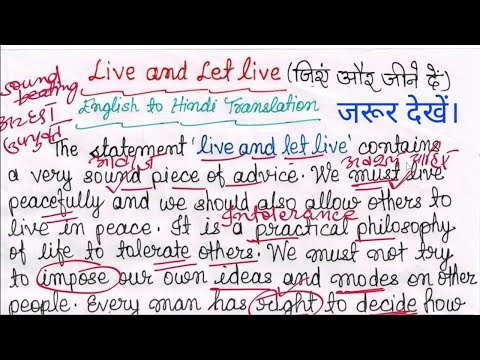 Live and Let live (जिएं और जीने दें)
sound
beating
English to Hindi Translation जरूर देखें।
अच्छा
उपयुक्त
The statement 'live and let live' contains
a very sound piece of advice. We must live
peacefully and we should also allow others to
Intolerance
live in peace. It is a practical philosophy
of life to tolerate others. We must not try
to impose our own ideas and modes on other
people. Every man has right to decide how